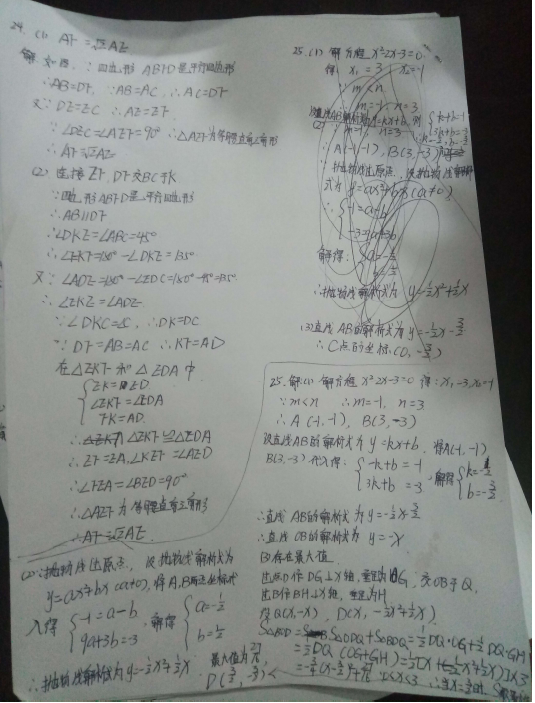 24. (1) AF = √2AE
解: 如图, ∵四边形 ABFD是平行四边形
∴AB=DF, ∵AB=AC, ∴AC=DF
又∵DE=EC ∴AE=EF
∵∠DEC=∠AEF=90° ∴△AEF为等腰直角三角形
∴AF=√2AE
(2) 连接EF, DF交BC于K
∵四边形ABFD是平行四边形
∴AB∥DF
∴∠DKE=∠ABC=45°
∴∠EKF=180°-∠DKE=135°
又∵∠ADE=180°-∠EDC=180°-45°=135°
∴∠EKF=∠ADE
∵∠DKC=∠C, ∴DK=DC
∵DF=AB=AC ∴KF=AD
在△EKF和△EDA中
EK=ED
∠EKF=∠EDA
KF=AD
∴△EKF≌△EDA
∴EF=EA, ∠KEF=∠AED
∴∠FEA=∠BED=90°
∴△AEF为等腰直角三角形
∴AF=√2AE
25. (1) 解方程 x²-2x-3=0
得: x₁=3, x₂=-1
∵m<n
∴m=-1, n=3
(2) ∵m=-1, n=3
∴A(-1,-1), B(3,-3)
∵抛物线过原点, 设抛物线解析
式为 y=ax²+bx(a≠0)
-1=a-b
-3=9a+3b
解得: a=-1/2
b=1/2
∴抛物线解析式为 y=-1/2x²+1/2x
(3)直线AB的解析式为 y=-1/2x-3/2
∴C点的坐标(0,-3/2)
25.解:(1) 解方程 x²-2x-3=0 得: x₁=3, x₂=-1
∵m<n ∴m=-1, n=3
∴A(-1,-1), B(3,-3)
设直线AB的解析式为 y=kx+b, 将A(-1,-1)
B(3,-3)代入得: -k+b=-1 解得 k=-1/2
3k+b=-3 b=-3/2
∴直线AB的解析式为 y=-1/2x-3/2
∴直线OB的解析式为 y=-x
(3)存在最大值
过点D作DG⊥x轴, 垂足为G, 交OB于Q,
过B作BH⊥x轴, 垂足为H
得Q(x,-x), D(x,-1/2x²+1/2x)
S△BOD=S△ODQ+S△BDQ=1/2DQ·OG+1/2DQ·GH
=1/2DQ(OG+GH)=1/2[x+(-1/2x²+1/2x)]×3
=-3/4(x-3/2)²+27/16 ∵0<x<3 ∴当x=3/2时, S
最大值为27/16
D(3/2,-3/8)
(2)∵抛物线过原点, 设抛物线解析式为
y=ax²+bx(a≠0), 将A,B两点坐标代
入得 -1=a-b 解得 a=-1/2
9a+3b=-3 b=1/2
∴抛物线解析式为 y=-1/2x²+1/2x